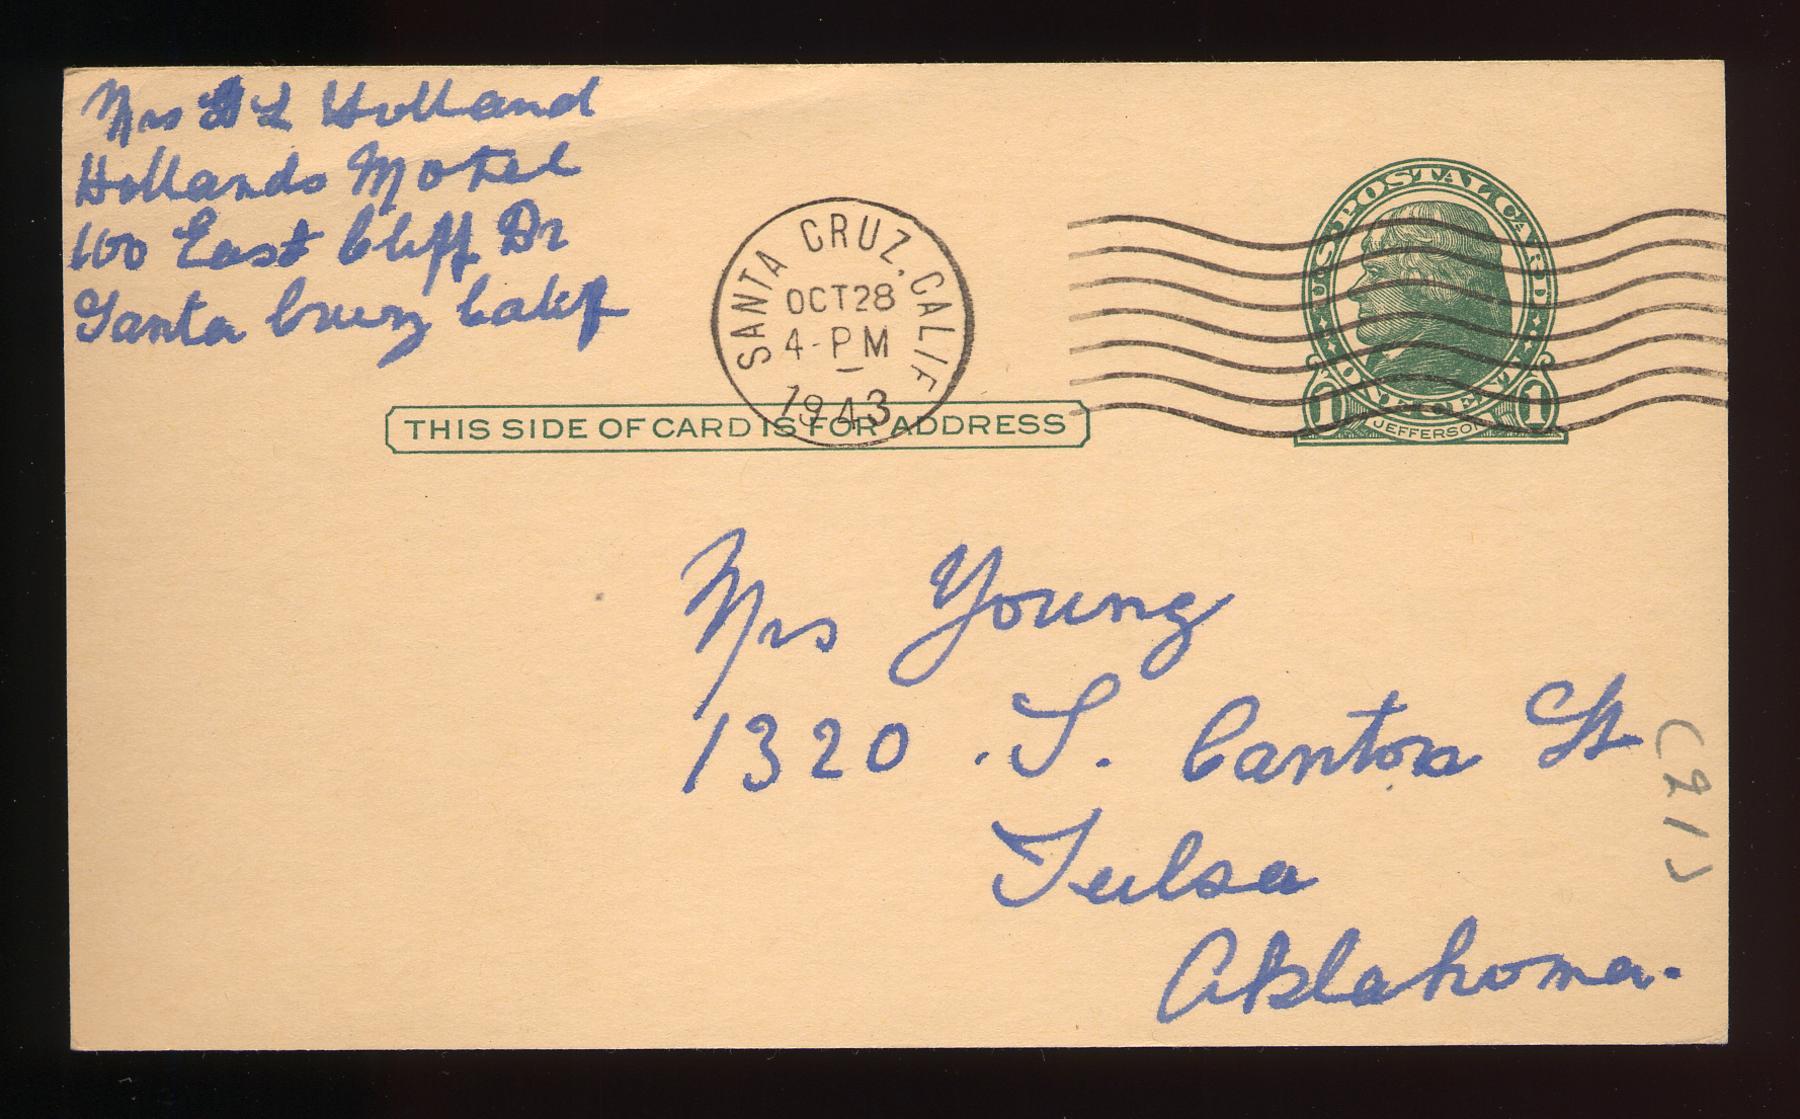 Mrs H L Holland
Hollands Motel
100 East Cliff Dr
Santa Cruz Calif
SANTA CRUZ, CALIF
OCT 28
4-PM
1943
U.S. POSTAL CARD
ONE CENT
1 1
JEFFERSON
THIS SIDE OF CARD IS FOR ADDRESS
Mrs Young
1320 . S. Canton St
Tulsa
Oklahoma.
(21)